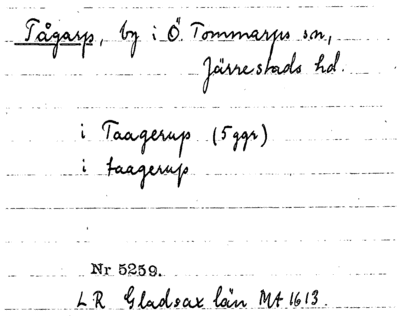 Tågarp, by i Ö. Tommarps sn,
Järrestads hd.
i Taagerup (5 ggr)
i taagerup
Nr 5259.
LR Gladsax län MA 1613.